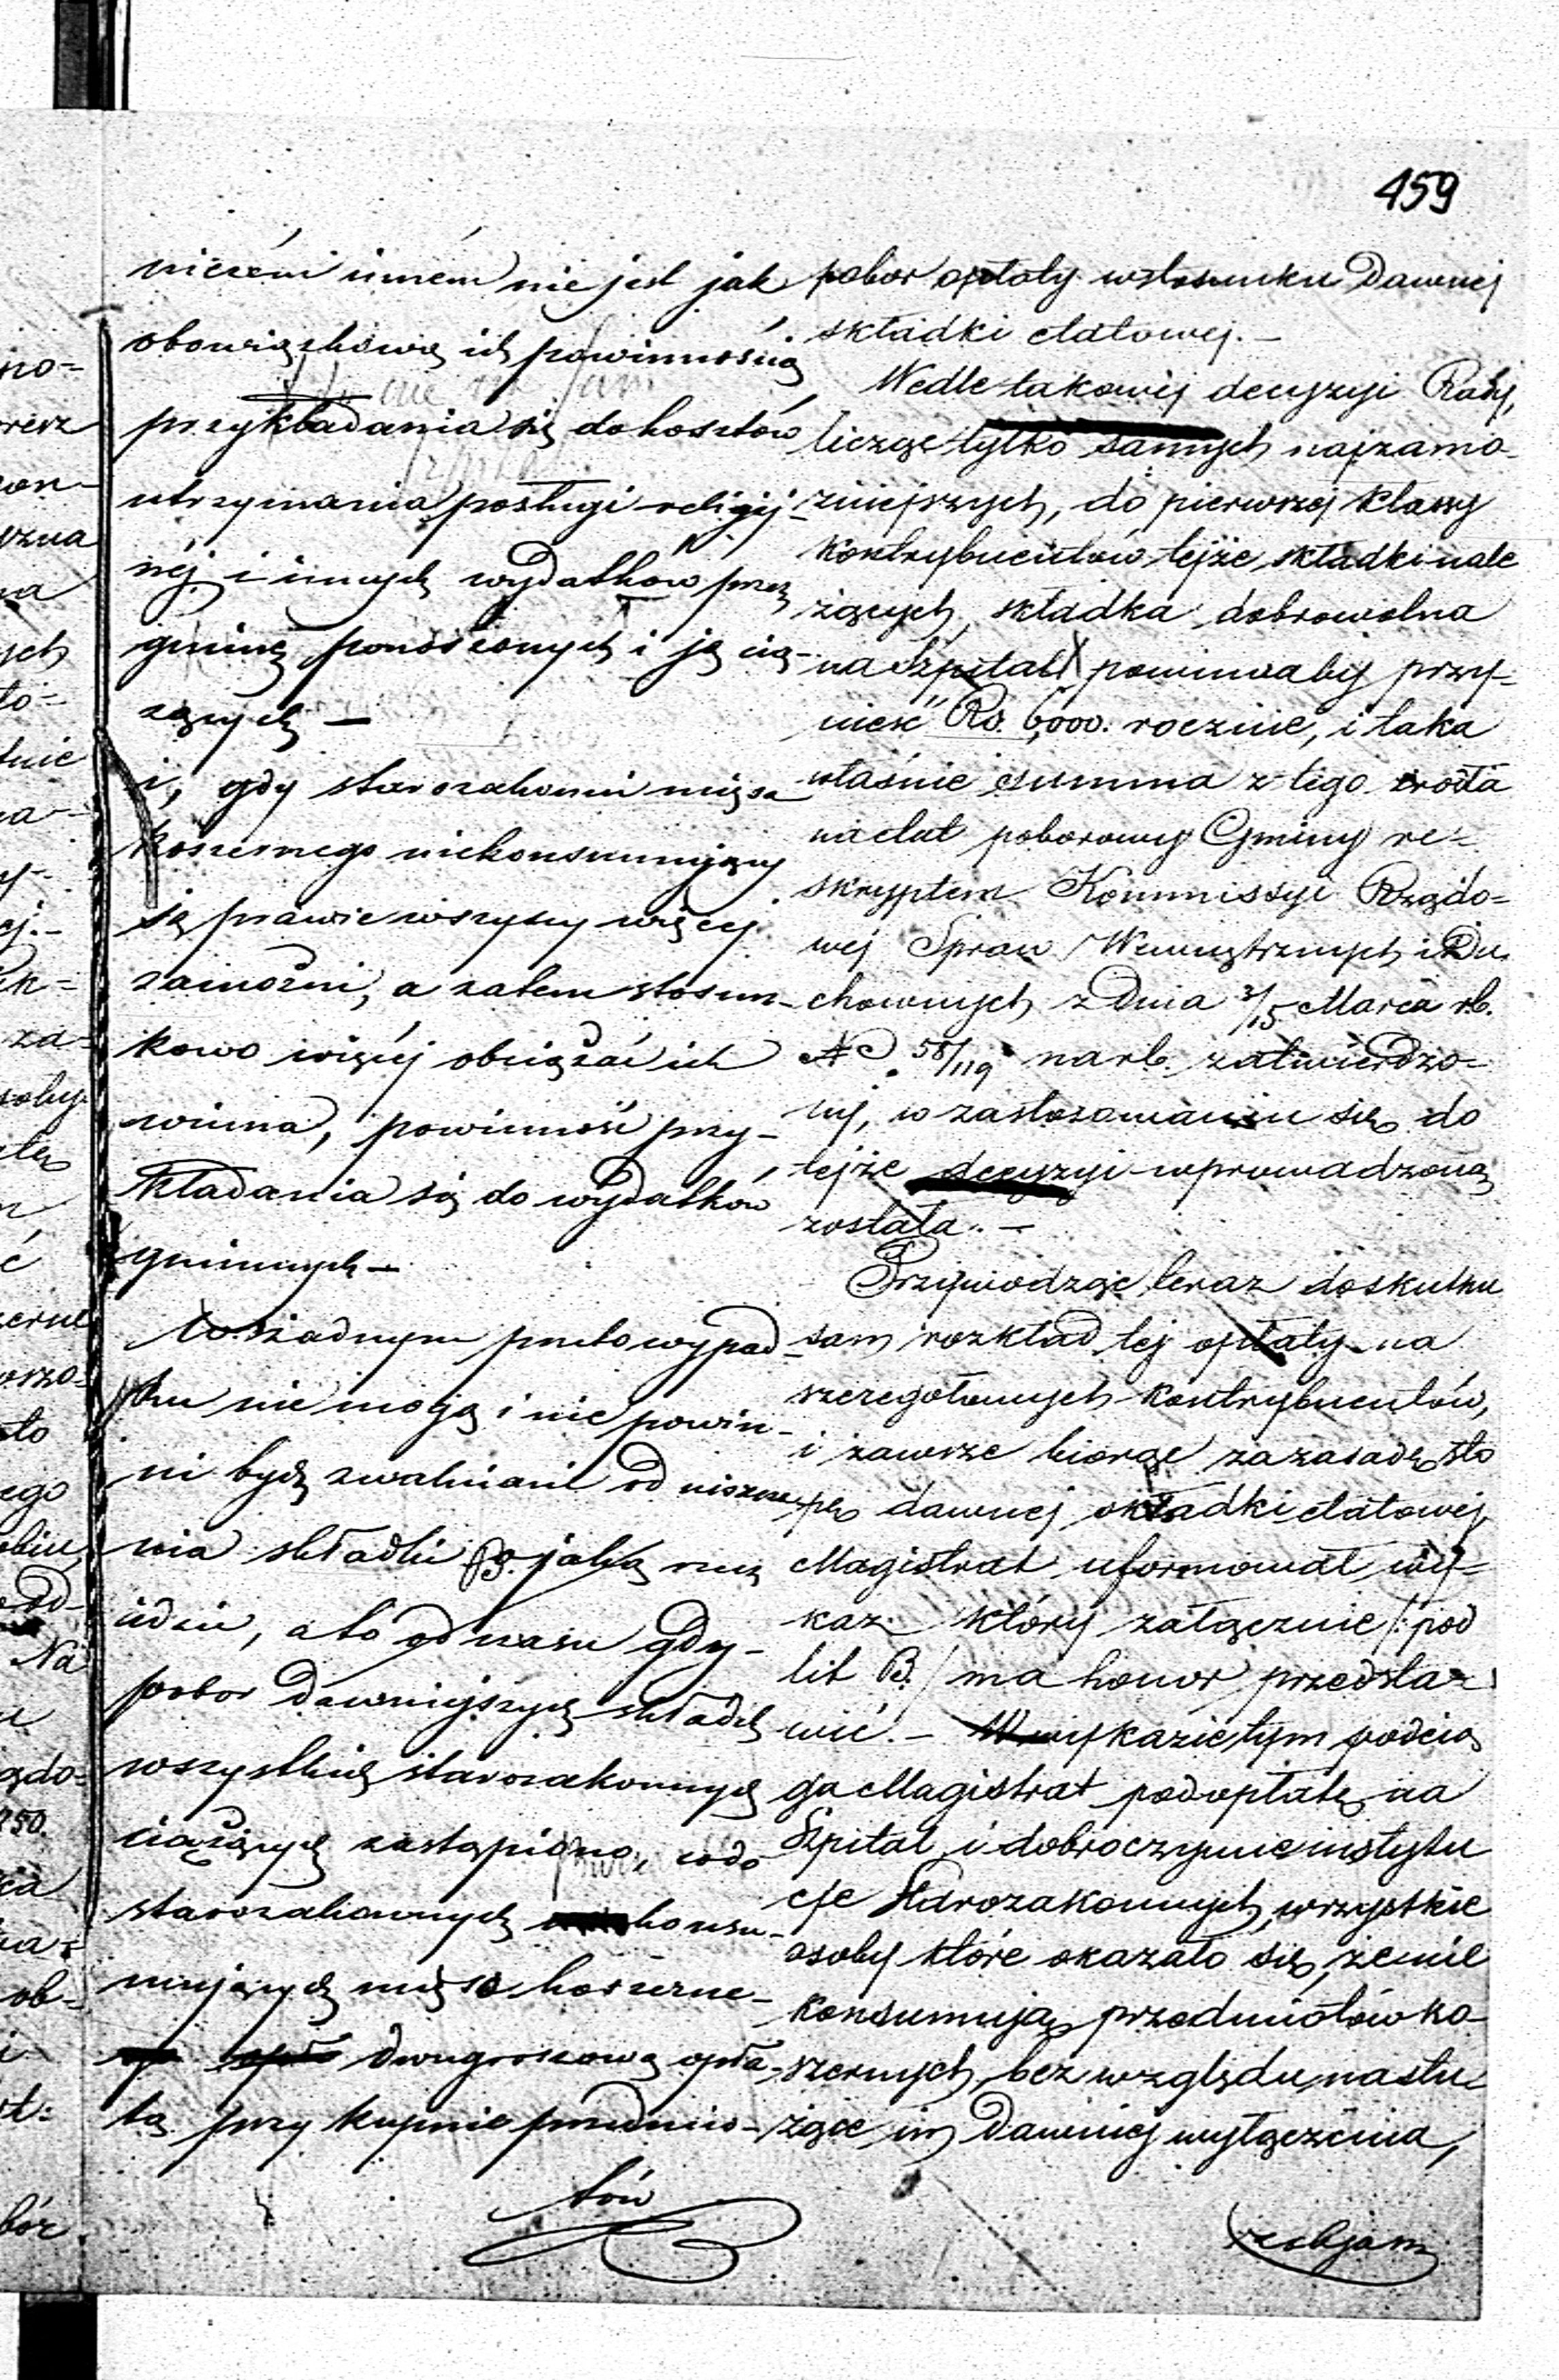 159
niczém inném nie jest jak
obowiązkową ich powinnością
przykładania się do kosztów
utrzymania posługi religij-
néj i innych wydatków przez
gminę ponoszonych i ją cią-
żących —
i, gdy starozakonni mięsa
koszernego niekonsumujący
są prawie wszyscy więcej
zamożni, a zatem stosun-
kowo więcéj obciążać ich
winna, powinność przy-
kładania się do wydatków
gminnych —
W żadnym przeto wypad-
ku nie mogą i nie powin-
ni być zwalniani od uiszcze-
nia składki
, a to od czasu gdy
pobor dawniejszych składek
wszystkich starozakonnych
ciążących zastąpiono, co do
starozakonnych konsu-
mujących mięso koszerne
dwugroszową opła-
tą przy kupnie przedmio-
tów
pobor opłaty w stosunku Dawnej
składki etatowej. —
Wedle takowej decyzyi Rady,
licząc tylko samych najzamo-
żniejszych, do pierwszej klassy
kontrybuentów tejże składki nale
żących, składka dobrowolna
na Szpital powinnaby przy-
nieść Rs. 6,000. rocznie, i taka
właśnie summa z tego źrodła
na etat poborowy Gminy re-
skryptem Kommissyi Rządo-
wej Spraw Wewnętrznych i Du
chownych z Dnia 3/15 Marca rb.
No. 58/119 na rb. zatwierdzo-
ny, w zastosowaniu się do
tejże decyzyi wprowadzoną
została. —
Przywodząc teraz do skutku
sam rozkład tej opłaty na
szeregołowych kontrybuentów,
i zawsze biorąc za zasadę sto
pę dawnej składki etatowej
Magistrat uformował wy-
kaz który załącznie /: pod
lit B:/ ma honor przedsta-
wić. — W wykazie tym pocią
ga Magistrat pod opłatę na
Szpital i dobroczynne instytu
cje Starozakonnych, wszystkie
osoby które okazało się, że nie
konsumują przedmiotów ko-
szernych, bez względu na słu-
żące im Dawniej wyłączenia,